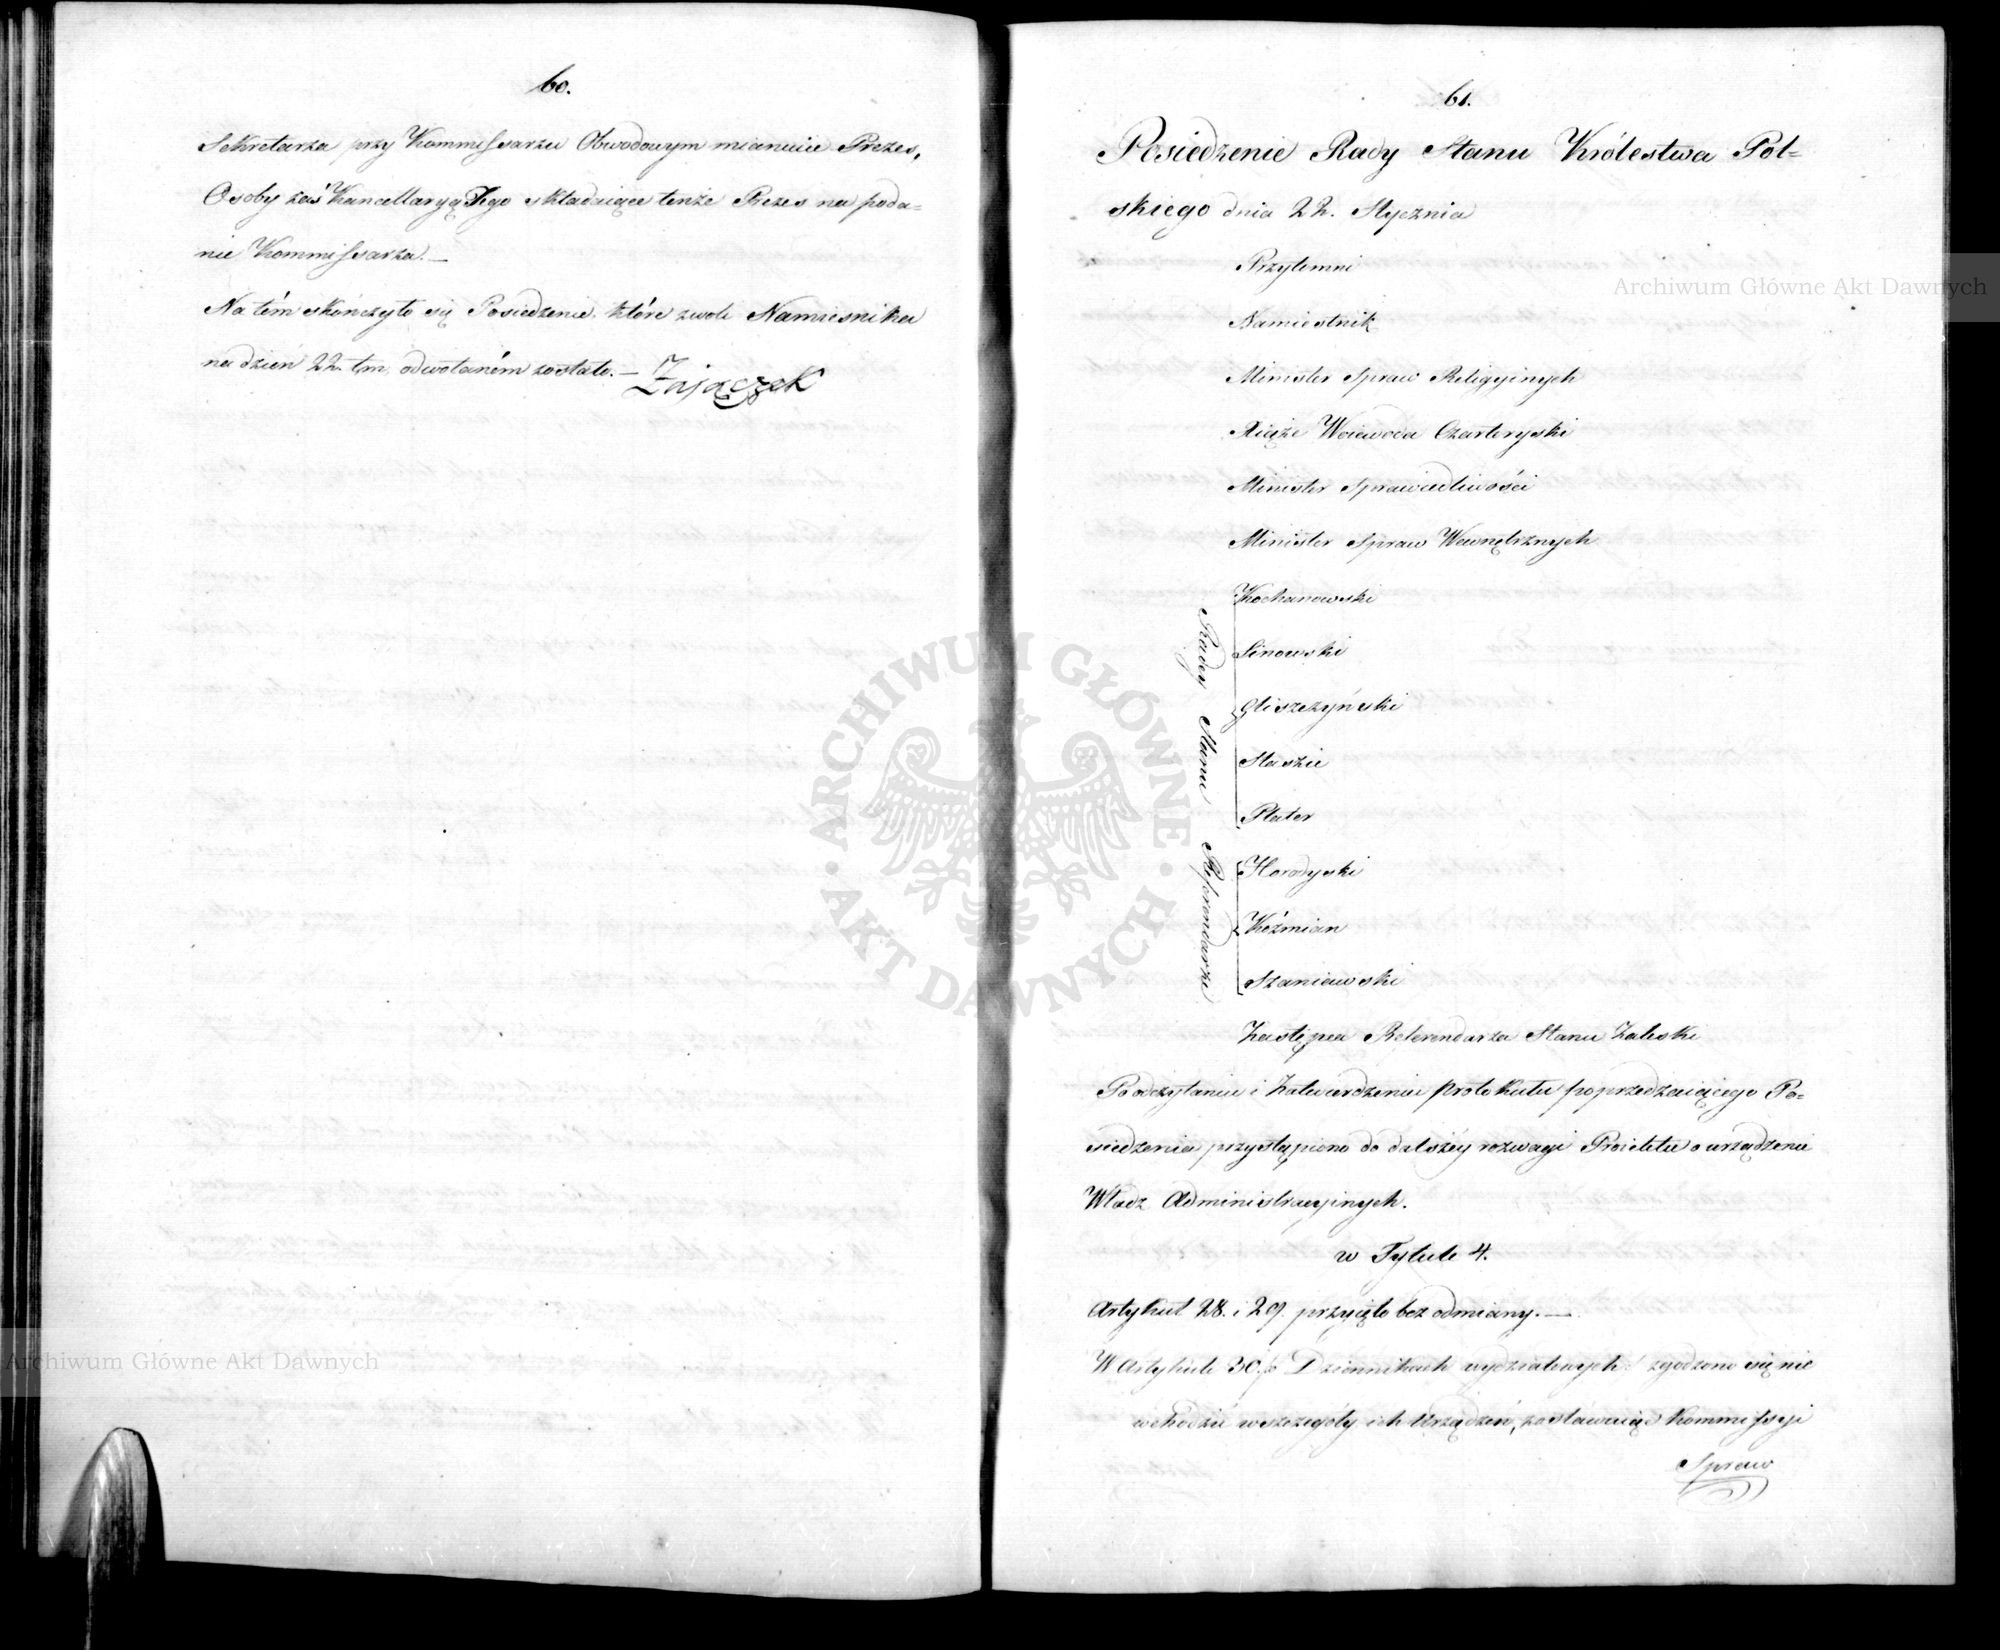 60.
Sekretarza przy Kommissarzu Obwodowym mianuie Prezes,
Osoby zaś Kancellaryą Jego składaiące tenże Prezes na poda=
nie Kommissarza.—
Na tém skończyło się Posiedzenie, które z woli Namiesnika
na dzień 22. t.m. odwołaném zostało.— Zajączek
61.
Posiedzenie Rady Stanu Królestwa Pol=
skiego dnia 22. Stycznia
Przytomni
Namiestnik
Minister Spraw Religyinych
Xiąże Woiewoda Czartoryski
Minister Sprawiedliwości
Minister Spraw Wewnętrznych
Radcy Stanu
Kochanowski
Linowski
Gliszczyński
Staszic
Plater
Referendarze
Horodyski
Koźmian
Szaniawski
Zastępca Referendarza Stanu Zaleski
Po odczytaniu i Zatwierdzeniu protokułu poprzedzaiącego Po=
siedzenia przystąpiono do dalszéy rozwagi Proiektu o urządzenie
Władz Administracyinych.
w Tytule 4.
Artykuł 28. i 29. przyięto bez odmiany.—
W Artykule 30. /:o Dziennikach wydziałowych:/ zgodzono się nie
wchodzić w szczegóły ich Urządzeń, zostawuiąc Kommissyi
Spraw
Archiwum Główne Akt Dawnych
Archiwum Główne Akt Dawnych
ARCHIWUM GŁÓWNE · AKT DAWNYCH ·